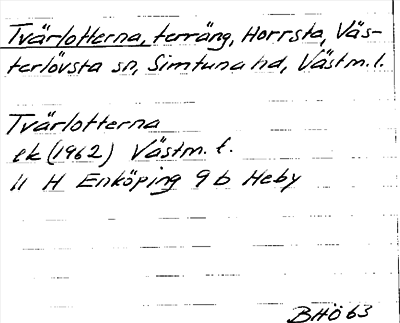 Tvärlotterna, terräng, Horrsta, Väs-
terlövsta sn, Simtuna hd, Västm. l.
Tvärlotterna
ek (1962) Västm. l.
11 H Enköping 9 b Heby
BHÖ 63